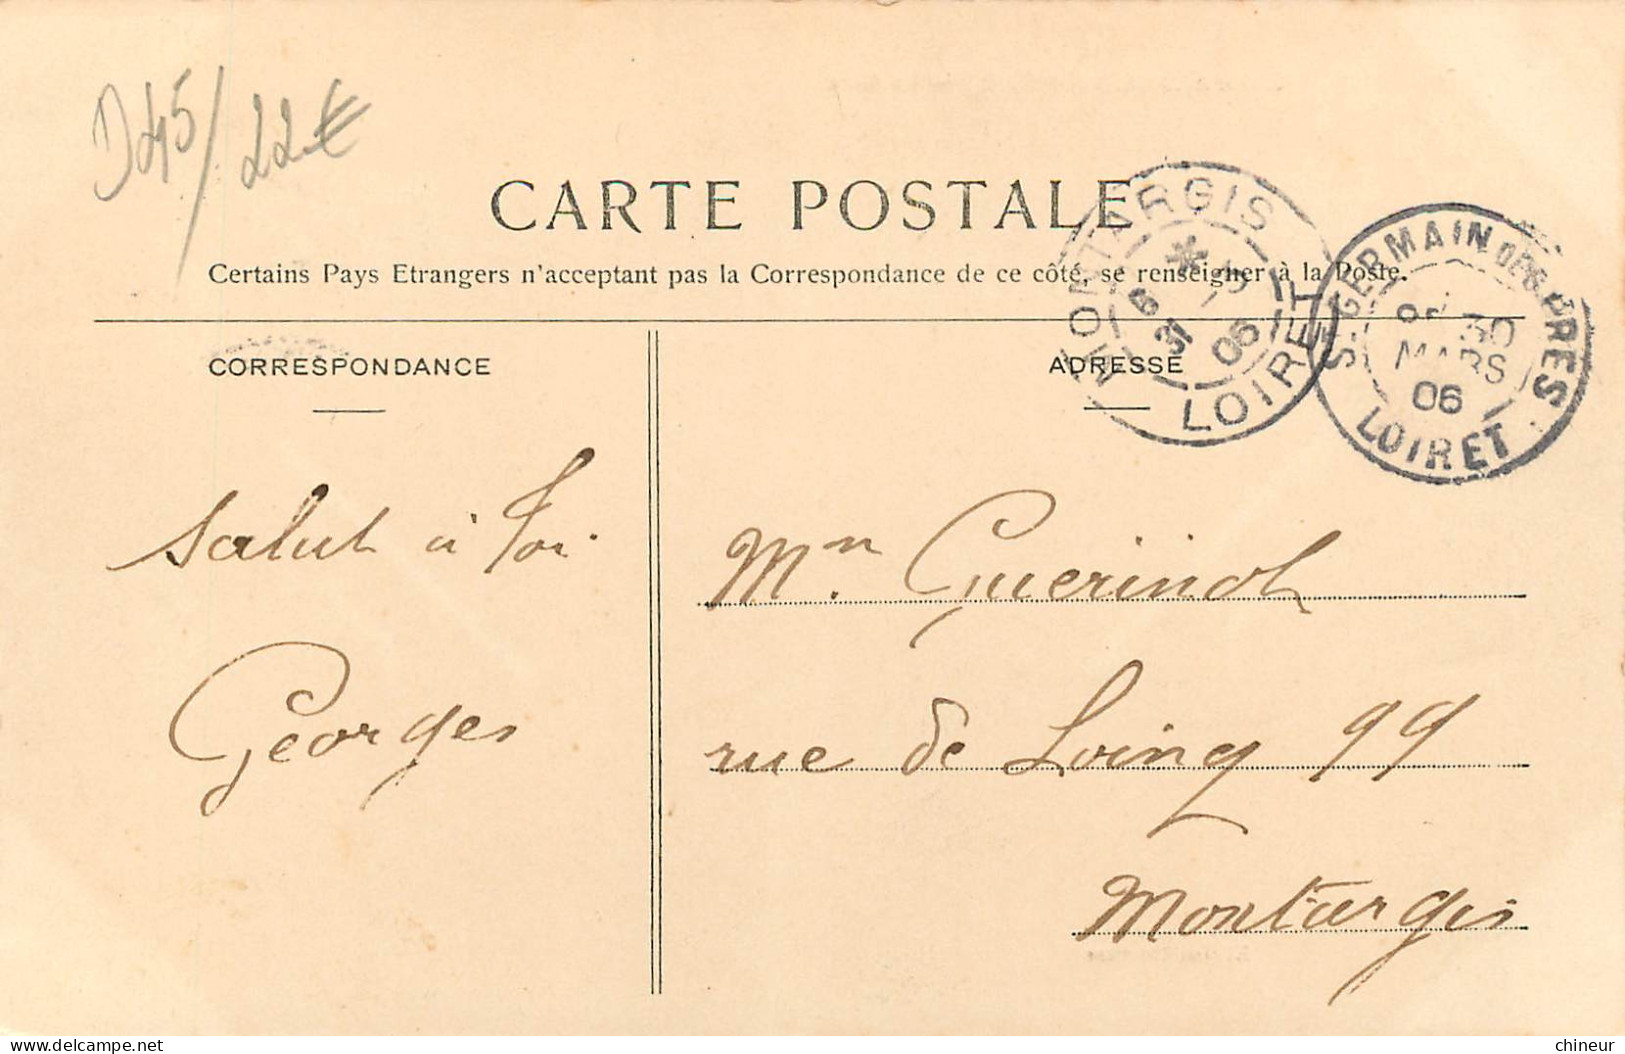 D45/22€
CARTE POSTALE
Certains Pays Etrangers n'acceptant pas la Correspondance de ce côté, se renseigner à la Poste.
MONTARGIS
6 31 3 06
LOIRET
ST GERMAIN DES PRES
30
MARS
06
LOIRET
CORRESPONDANCE
ADRESSE
Salut à toi.
Georges
Mn. Guerinot
rue de Loing 99
Montargis
chineur